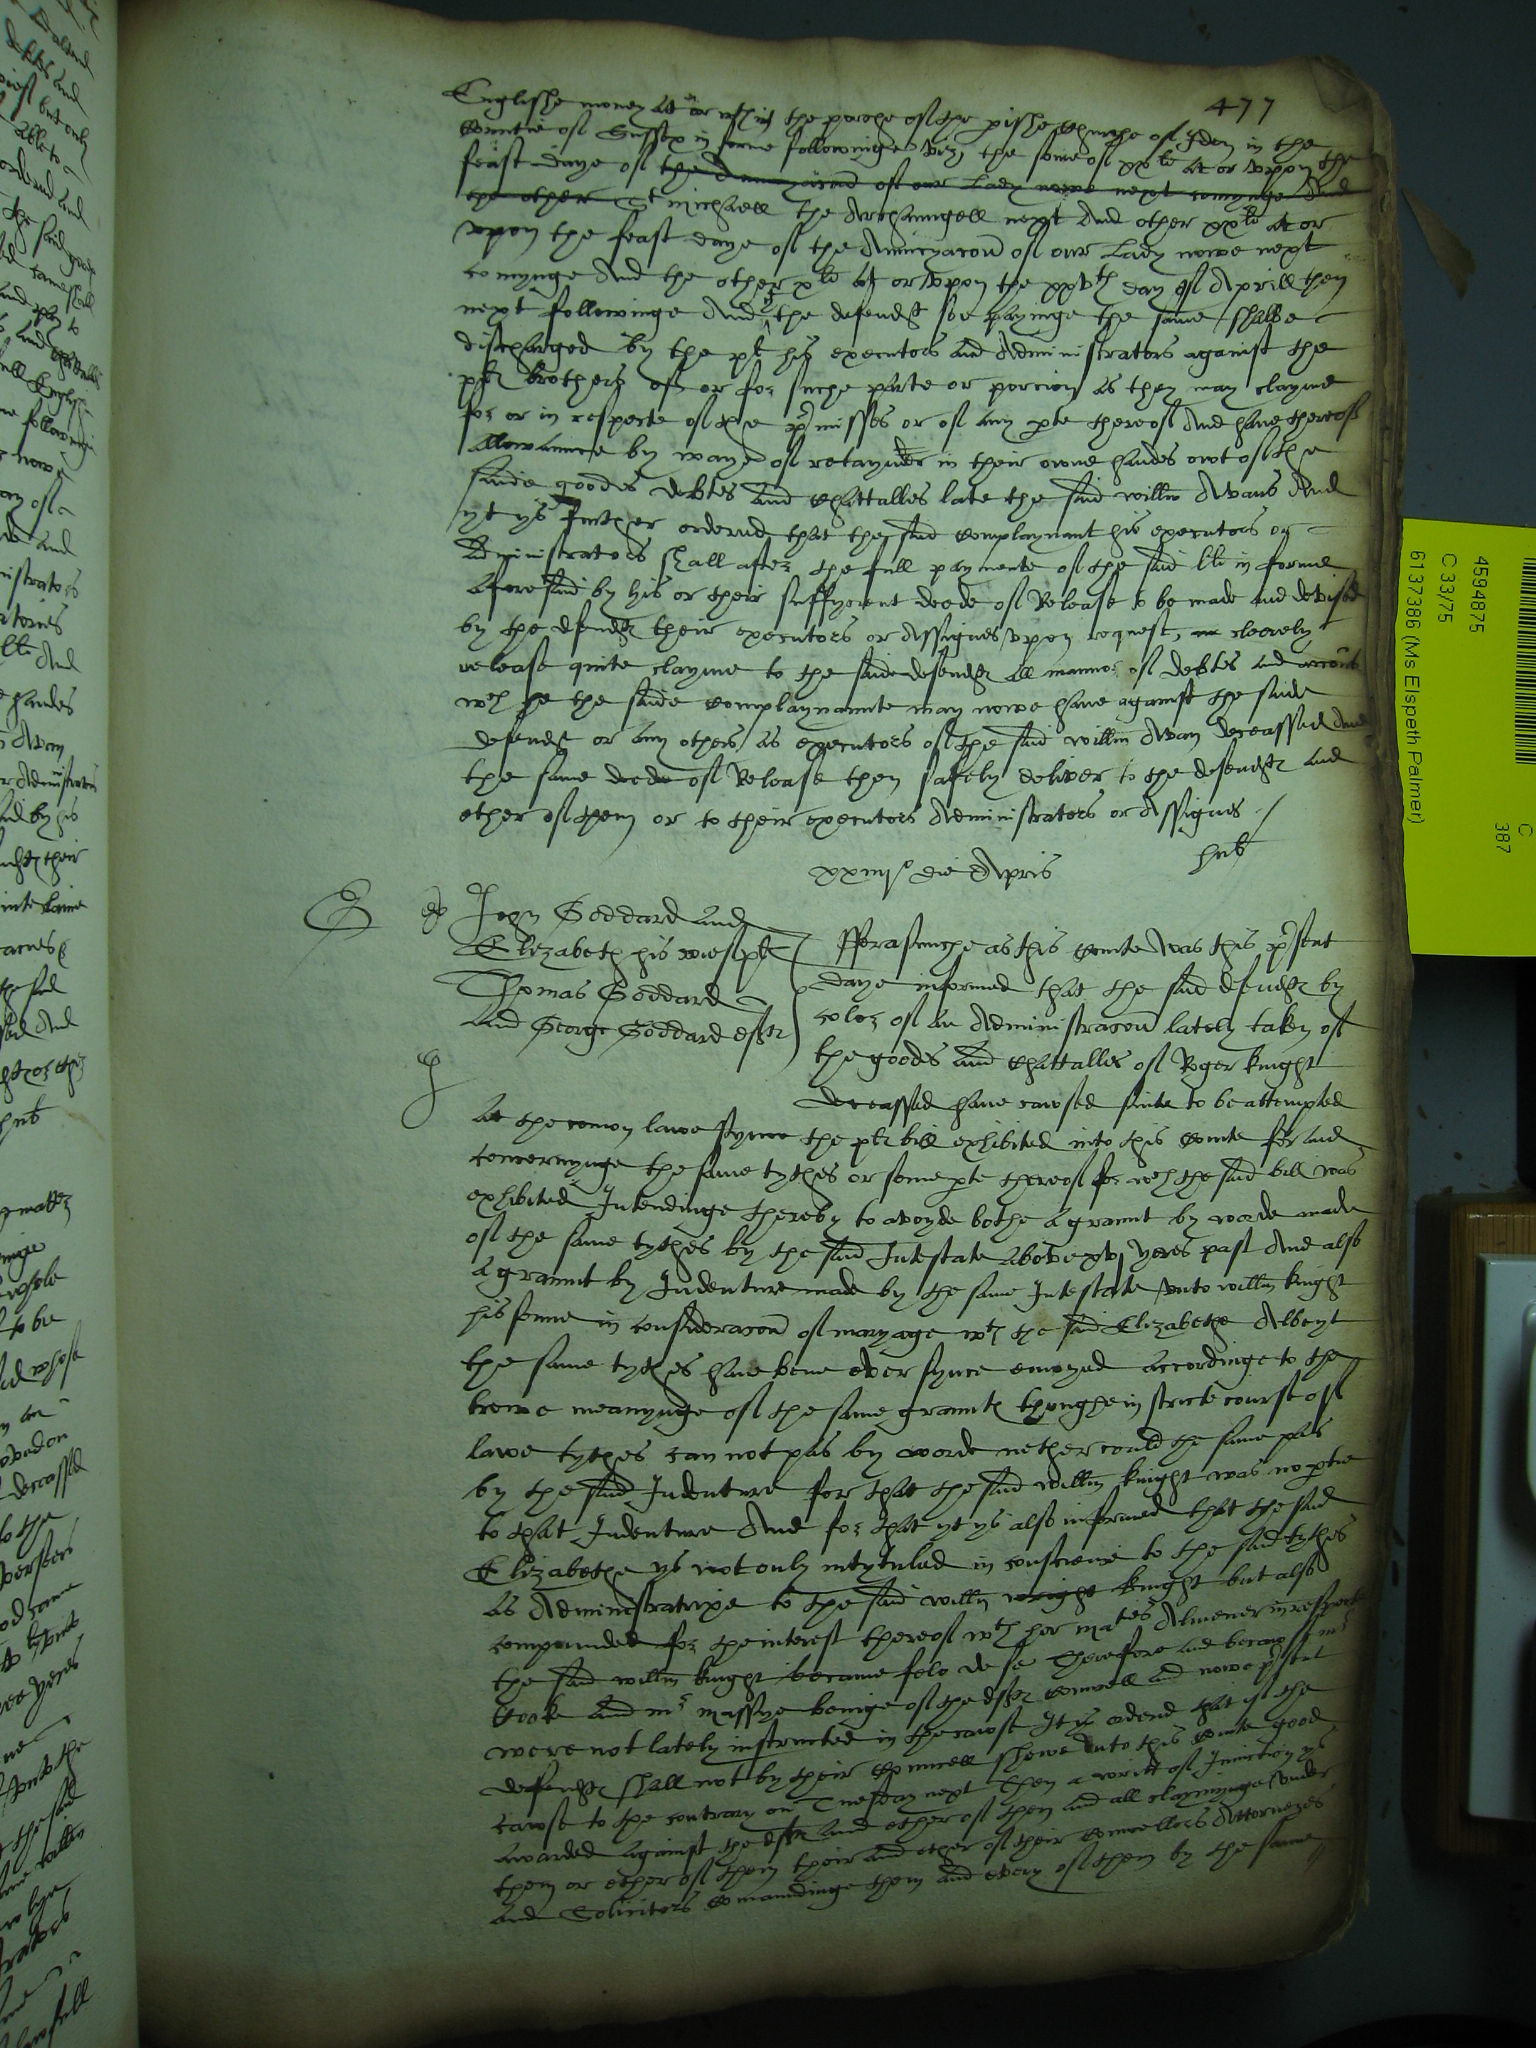 477
Englishe money at or wthin the porche of the pishe Churche of Iden in the
Countie of Sussex in forme followinge viz the some of xxli at or uppon the
feast daye of the Anuncyacion of our Lady nowe next comynge And
the other St Michaell the Archaungell next And other xxli at or
vpon the feast daye of the Anuncyacion of our Lady nowe next
comynge And the other xli at or vpon the xxvth day of Aprill then
next followinge And the defendts soe payinge the same shalbe
discharged by the plt his executors and Administrators against the
plts brothers of or for suche parte or porcion as they may clayme
for or in respecte of the pmisses or of any pte thereof And have thereof
allowaunce by waye of retayner in their owne handes owt of the
saide goodes debtes and Chattalles late the said willm Avans And
yt ys further ordered that the said Complaynant his executors or
Administrators shall after the full paymente of the said lli in forme
aforesaid by his or their suffycient deede of Release to be made and devised
by the defendts their executors or Assignes vpon request, cleerely
release quite clayme to the saide defendts all manner of debtes and accounts
wch he the saide Complaynaunte may nowe have against the saide
defendts or any others as executors of the said willm Avan deceassed And
the same deede of Release then safely deliver to the defendts and
ether of them or to their executors Administrators or Assignes /
xxiiijo die Aprilis
John Goddard and
Elizabeth his wief plts
Thomas Goddard
and George Goddard defts
fforasmuche as this Courte was this psent
daye informed that the said defendts by
color of an Administracion lately taken of
the goodes and Chattalles of Roger knight
deceassed have cawsed suite to be attempted
at the comon lawe synce the plts bill exhibited into this Courte for and
concernynge the same tythes or some pte thereof for wch the said bill was
exhibited Intendinge thereby to avoyde bothe a graunt by worde made
of the same tythes by the said Intestate above xvj yeres past And also
a graunt by Indenture made by the same Intestate vnto willm knight
his sonne in consideracion of maryage wth the said Elizabethe Albeyt
the same tythes have bene ever synce enioyed accordinge to the
trewe meanynge of the same graunts thoughe in stricte course of
lawe tythes can not pas by worde nether could the same pas
by the said Indenture for that the said willm knight was no ptie
to that Indenture And for that yt ys also informed that the said
Elizabethe ys not only intytuled in conscience to the said tythes
as Administratrixe to the said willm wright knight but also
compounded for the interest thereof wth her maties Almener in respecte
the said willm knight became felo de se Therefore and because mr
Cooke and mr Massye beinge of the defts Councell and nowe psent
were not lately instructed in the cawse It ys ordered that if the
defendts shall not by their Councell shewe vnto this Courte good
cawse to the contrary on Tuesday next Then a writt of Iniunction ys
awarded against the defts and ether of them and all claymynge vnder
them or ether of them their and ether of their Councellors Attorneyes
and Solicitors Comaundinge them and every of them by the same
4594875
C 33/75
6137386 (Ms Elspeth Palmer)
C
387